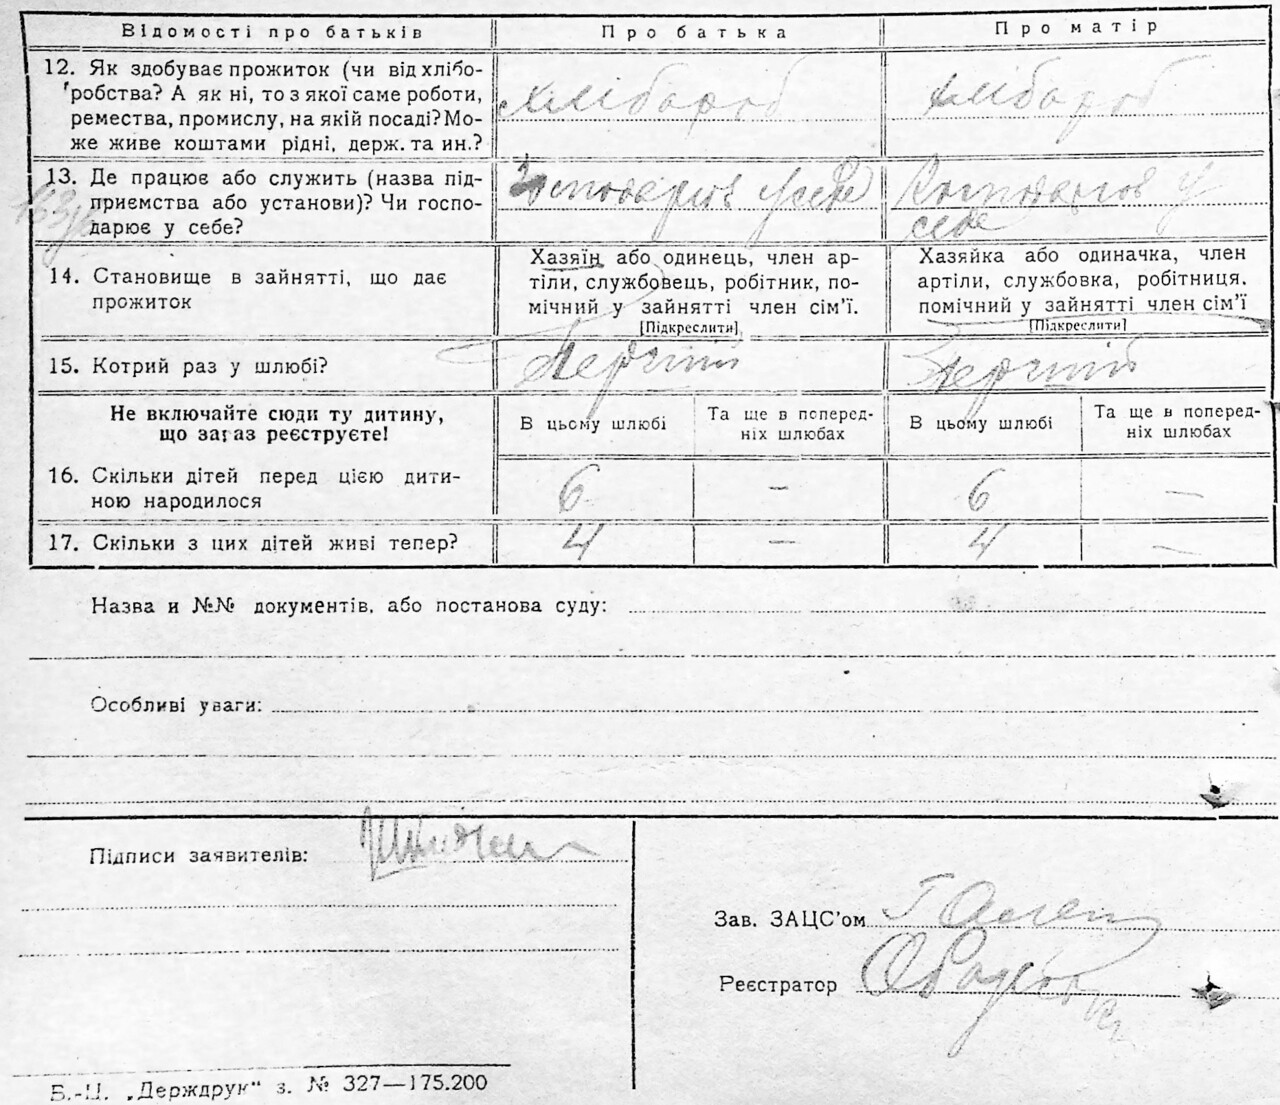 Відомості про батьків
Про батька
Про матір
12. Як здобуває прожиток (чи від хлібо-
робства? А як ні, то з якої саме роботи,
ремества, промислу, на якій посаді? Мо-
же живе коштами рідні, держ. та ин.?
хлібороб
хлібороб
13. Де працює або служить (назва під-
приємства або установи)? Чи госпо-
дарює у себе?
у себе
у
себе
14. Становище в зайнятті, що дає
прожиток
Хазяїн або одинець, член ар-
тіли, службовець, робітник, по-
мічний у зайнятті член сім'ї.
[Підкреслити]
Хазяйка або одиначка, член
артіли, службовка, робітниця.
помічний у зайнятті член сім'ї
[Підкреслити]
15. Котрий раз у шлюбі?
Перший
Перший
Не включайте сюди ту дитину,
що зараз реєструєте!
В цьому шлюбі
Та ще в поперед-
ніх шлюбах
В цьому шлюбі
Та ще в поперед-
ніх шлюбах
16. Скільки дітей перед цією дити-
ною народилося
6
—
6
—
17. Скільки з цих дітей живі тепер?
4
—
4
—
Назва и №№ документів, або постанова суду:
Особливі уваги:
Підписи заявителів:
Зав. ЗАЦС'ом
Реєстратор
Б.-Ц. „Держдрук“ з. № 327—175.200